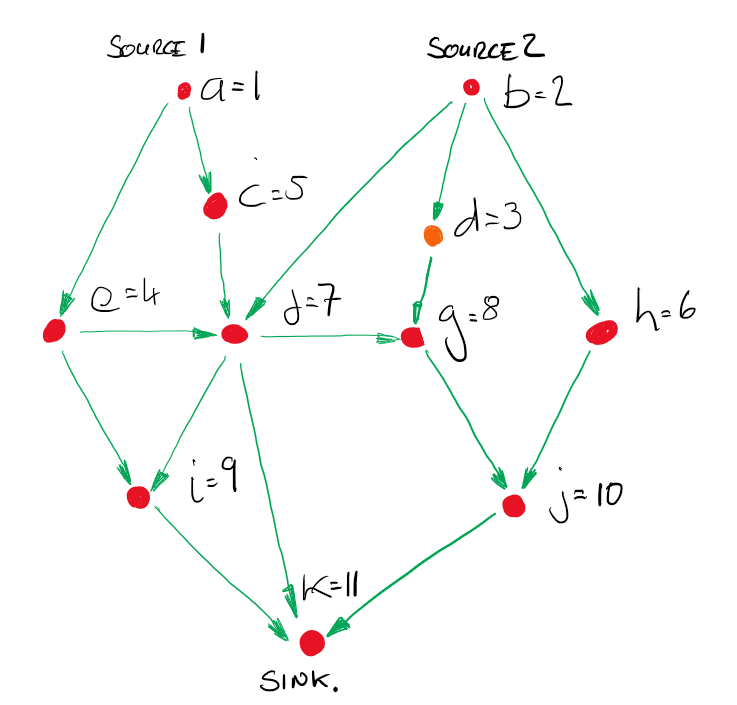 SOURCE 1
SOURCE 2
a=1
b=2
c=5
d=3
e=4
f=7
g=8
h=6
i=9
j=10
k=11
SINK.